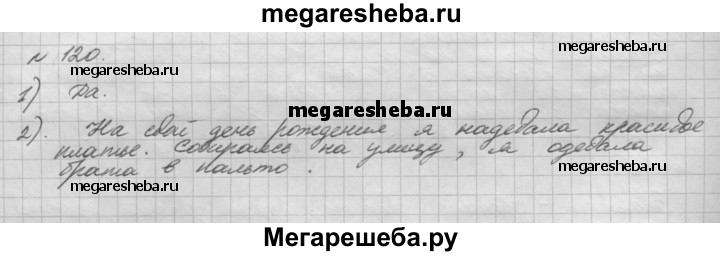 megaresheba.ru
№ 120.
megaresheba.ru megaresheba.ru
1) Да.
megaresheba.ru
2). На свой день рождения я надевала красивое
платье. Собираясь на улицу, я одевала
брата в пальто.
megaresheba.ru megaresheba.ru
Мегарешеба.ру